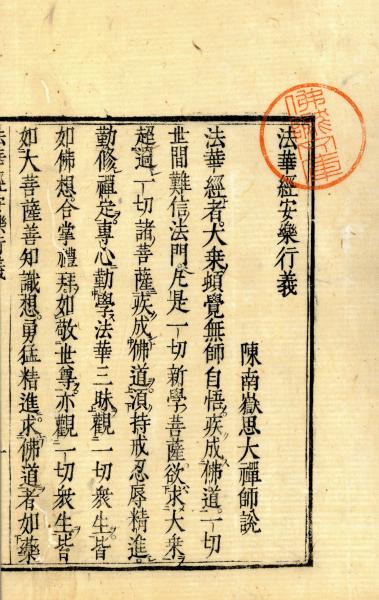 法華經安樂行義
陳南嶽思大禪師說
法華經者大乗頓覺無師自悟疾成佛道一切
世間難信法門凡是一切新學菩薩欲求大乗
超過一切諸菩薩疾成佛道須持戒忍辱精進
勤修禪定專心勤學法華三昧觀一切衆生皆
如佛想合掌禮拜如敬世尊亦觀一切衆生皆
如大菩薩善知識想勇猛精進求佛道者如藥
法華經安樂行義